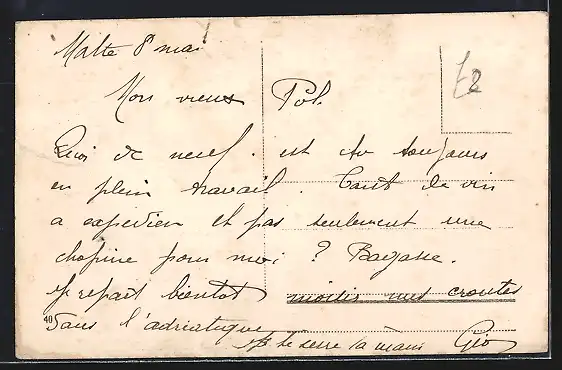 Malte 8 mai
£2
Mon vieux Pol.
Quoi de neuf. est tu toujours
en plein travail. Tant de vin
a expedier et pas seulement une
chopine pour moi ? Bagasse.
Je repart bientot moisir mes croutes
40
Dans l'adriatique
Je te serre la main Gio